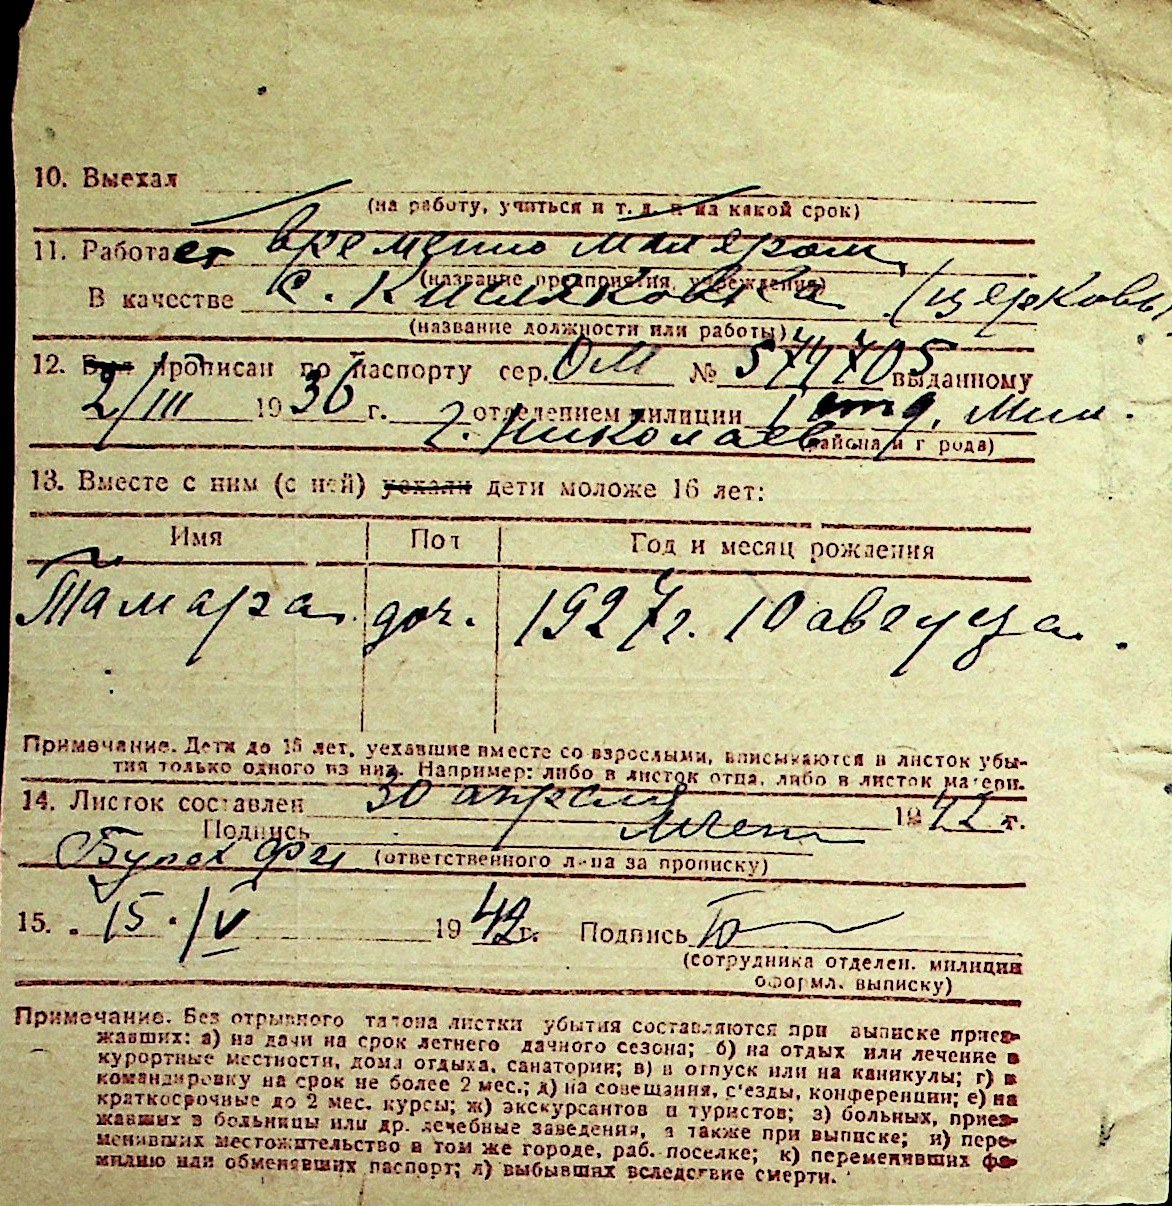 10. Выехал
(на работу, учиться и т. д. и на какой срок)
11. Работает временно маляром
(название предприятия, учреждения)
В качестве с. Кисляковка (церковь)
(название должности или работы)
12. Был прописан по паспорту сер. ОМ № 574705 выданному
2/III 1936 г. отделением милиции I отд. Мил.
г. Николаев
(района и города)
13. Вместе с ним (с ней) уехали дети моложе 16 лет:
Имя Пол Год и месяц рождения
Тамара доч. 1927 г. 10 августа.
Примечание. Дети до 15 лет, уехавшие вместе со взрослыми, вписываются в листок убы-
тия только одного из них. Например: либо в листок отца, либо в листок матери.
14. Листок составлен 30 апреля 1942 г.
Подпись
(ответственного лица за прописку)
15. 15/IV 1942 г. Подпись
(сотрудника отделен. милиции
оформл. выписку)
Примечание. Без отрывного талона листки убытия составляются при выписке приез-
жавших: а) на дачи на срок летнего дачного сезона; б) на отдых или лечение в
курортные местности, дома отдыха, санатории; в) в отпуск или на каникулы; г) в
командировку на срок не более 2 мес.; д) на совещания, с'езды, конференции; е) на
краткосрочные до 2 мес. курсы; ж) экскурсантов и туристов; з) больных, приез-
жавших в больницы или др. лечебные заведения, а также при выписке; и) пере-
менивших местожительство в том же городе, раб. поселке; к) переменивших фа-
милию или обменявших паспорт; л) выбывших вследствие смерти.